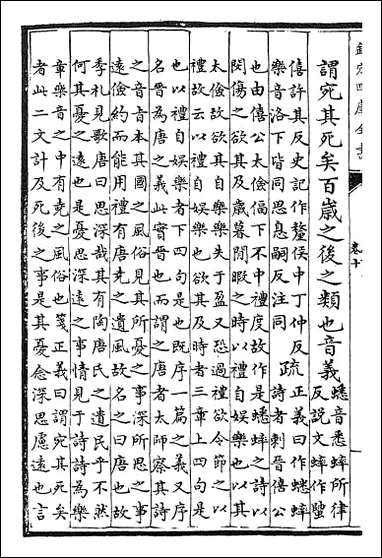 欽定四庫全書
卷十
謂宛其死矣百歲之後之類也音義
蟋音悉蟀所律
反說文蟀作䗐
僖許其反史記作釐侯中丁仲反
樂音洛下皆同思息嗣反注同
疏
正義曰作蟋蟀
詩者刺晉僖公
也由僖公太儉偪下不中禮度故作是蟋蟀之詩以
閔傷之欲其及歲暮閒暇之時以禮自娛樂也以其
太儉故欲其自樂樂失于盈又恐過禮欲令節之以
禮故云以禮自娛樂也欲其及時者三章上四句是
也以禮自娛樂者下四句是也既序一篇之義又序
名晉為唐之義此實晉也而謂之唐者太師察其詩
之音旨本其國之風俗見其所憂之事深所思之事
遠儉約而能用禮有唐堯之遺風故名之曰唐也故
季札見歌唐曰思深哉其有陶唐氏之遺民乎不然
何其憂之遠也是憂思深遠之事情見于詩詩為樂
章樂音之中有堯之風俗也箋正義曰謂宛其死矣
者此二文計及死後之事是其憂念深思慮遠也言